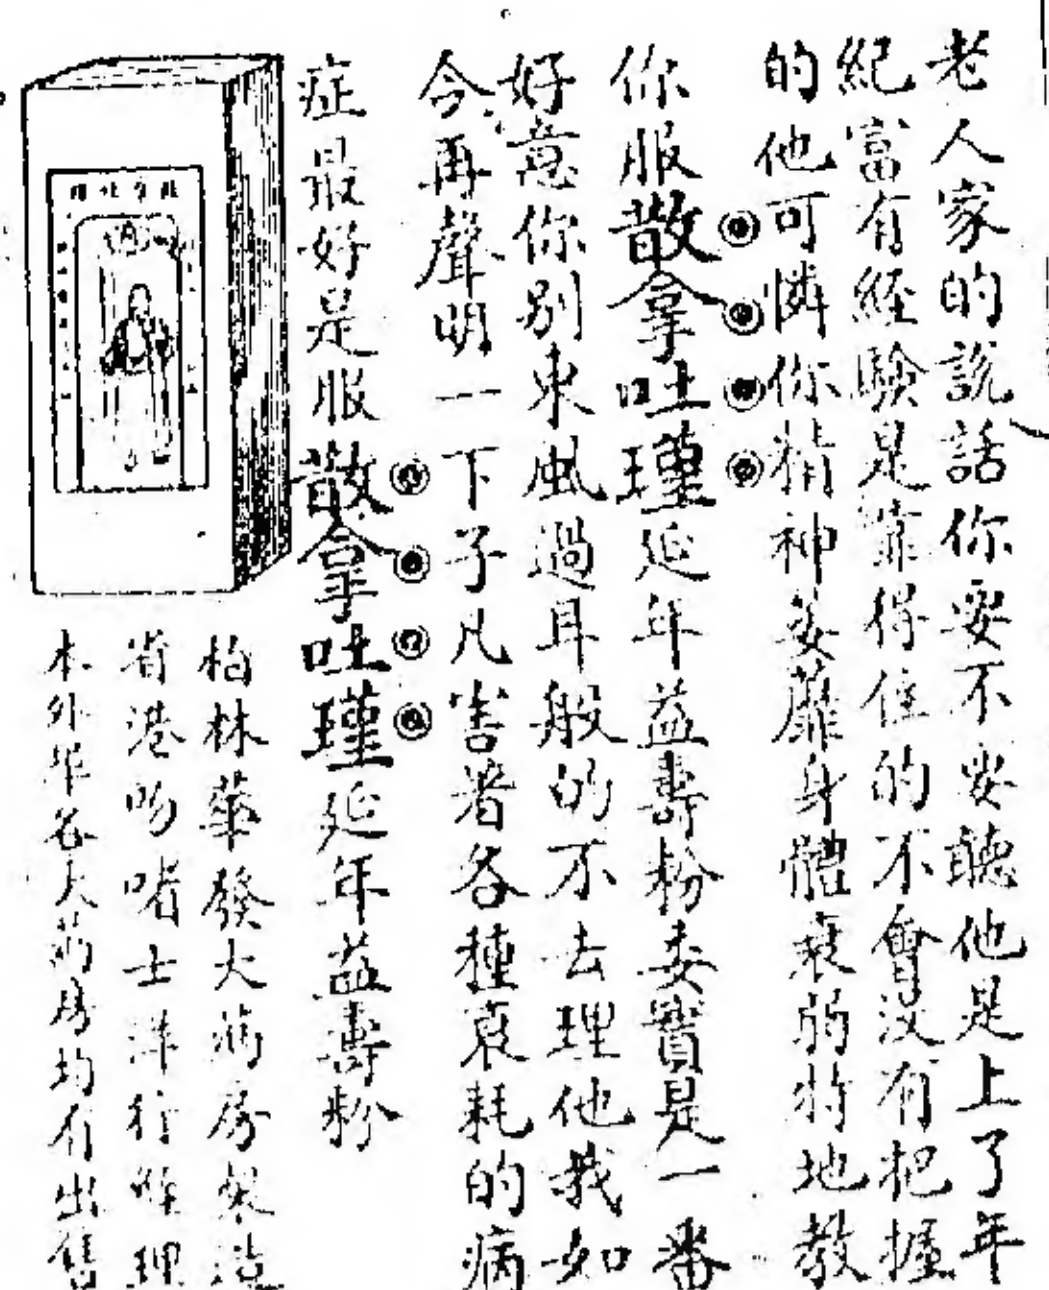 老人家的說話你要不要聽他是上了年
紀富有經驗是靠得住的不會沒有把握
的他可憐你精神委靡身體衰弱特地教
你服散拿吐瑾延年益壽粉委實是一番
好意你別東風過耳般的不去理他我如
今再聲明一下子凡害着各種衰耗的病
症最好是服散拿吐瑾延年益壽粉
柏林華發大藥房製造
省港喲啫士洋行經理
本外埠各大葯房均有出售